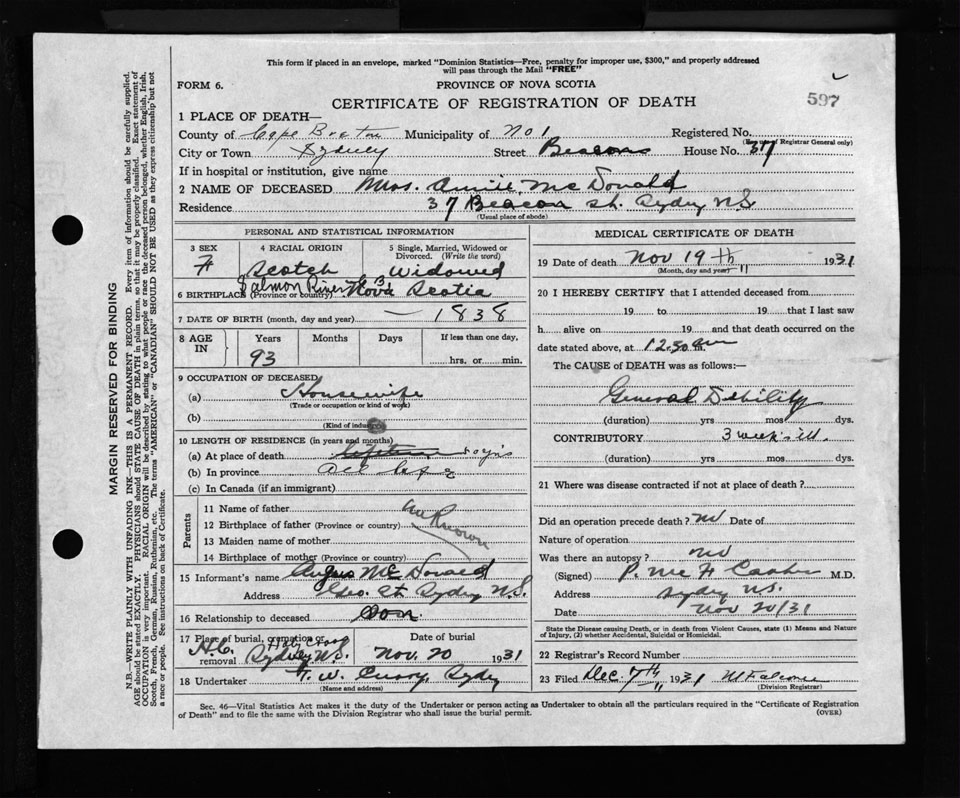 This form if placed in an envelope, marked "Dominion Statistics—Free, penalty for improper use, $300," and properly addressed
will pass through the Mail "FREE"
FORM 6.
PROVINCE OF NOVA SCOTIA
597
CERTIFICATE OF REGISTRATION OF DEATH
1 PLACE OF DEATH—
County of Cape Breton Municipality of No 1 Registered No.
(For use of Registrar General only)
City or Town Sydney Street Beacon House No. 37
If in hospital or institution, give name
2 NAME OF DECEASED Mrs. Annie McDonald
Residence 37 Beacon St. Sydney N.S.
(Usual place of abode)
PERSONAL AND STATISTICAL INFORMATION
3 SEX 4 RACIAL ORIGIN 5 Single, Married, Widowed or
Divorced. (Write the word)
F Scotch Widowed
Salmon River C.B.
6 BIRTHPLACE (Province or country) Nova Scotia
7 DATE OF BIRTH (month, day and year) — 1838
8 AGE IN Years Months Days If less than one day,
93 hrs. or min.
9 OCCUPATION OF DECEASED
(a) Housewife
(Trade or occupation or kind of work)
(b)
(Kind of industry)
10 LENGTH OF RESIDENCE (in years and months)
(a) At place of death lifetime
(b) In province All life
(c) In Canada (if an immigrant)
Parents
11 Name of father
12 Birthplace of father (Province or country)
unknown
13 Maiden name of mother
14 Birthplace of mother (Province or country)
15 Informant's name Angus McDonald
Address Geo. St. Sydney N.S.
16 Relationship to deceased Son.
17 Place of burial, cremation or removal Sydney N.S. Date of burial Nov. 20 1931
18 Undertaker T. W. Curry, Sydney
(Name and address)
MEDICAL CERTIFICATE OF DEATH
19 Date of death Nov 19th 1931
(Month, day and year)
20 I HEREBY CERTIFY that I attended deceased from
19 to 19 that I last saw
h alive on 19 and that death occurred on
date stated above, at 12.50 am.
The CAUSE of DEATH was as follows:—
General Debility
(duration) yrs mos. dys.
CONTRIBUTORY 3 weeks ill.
(duration) yrs mos. dys.
21 Where was disease contracted if not at place of death?
Did an operation precede death? no Date of
Nature of operation
Was there an autopsy? no
(Signed) P. McF M.D.
Address Sydney N.S.
Date Nov 20/31
State the Disease causing Death, or in death from Violent Causes, state (1) Means and Nature
of Injury, (2) whether Accidental, Suicidal or Homicidal.
22 Registrar's Record Number
23 Filed Dec. 7th 1931
(Division Registrar)
Sec. 46—Vital Statistics Act makes it the duty of the Undertaker or person acting as Undertaker to obtain all the particulars required in the "Certificate of Registration
of Death" and to file the same with the Division Registrar who shall issue the burial permit.
(OVER)
MARGIN RESERVED FOR BINDING
N.B.—WRITE PLAINLY WITH UNFADING INK—THIS IS A PERMANENT RECORD. Every item of information should be carefully supplied.
AGE should be stated EXACTLY. PHYSICIANS should STATE CAUSE OF DEATH in plain terms, so that it may be properly classified. Exact statement of
OCCUPATION is very important. RACIAL ORIGIN will be described by stating to what people or race the deceased person belonged, whether English, Irish,
Scotch, French, German, Russian, Ruthenian, etc. The terms "AMERICAN" or "CANADIAN" SHOULD NOT BE USED as they express citizenship but not
a race or people. See instructions on back of Certificate.